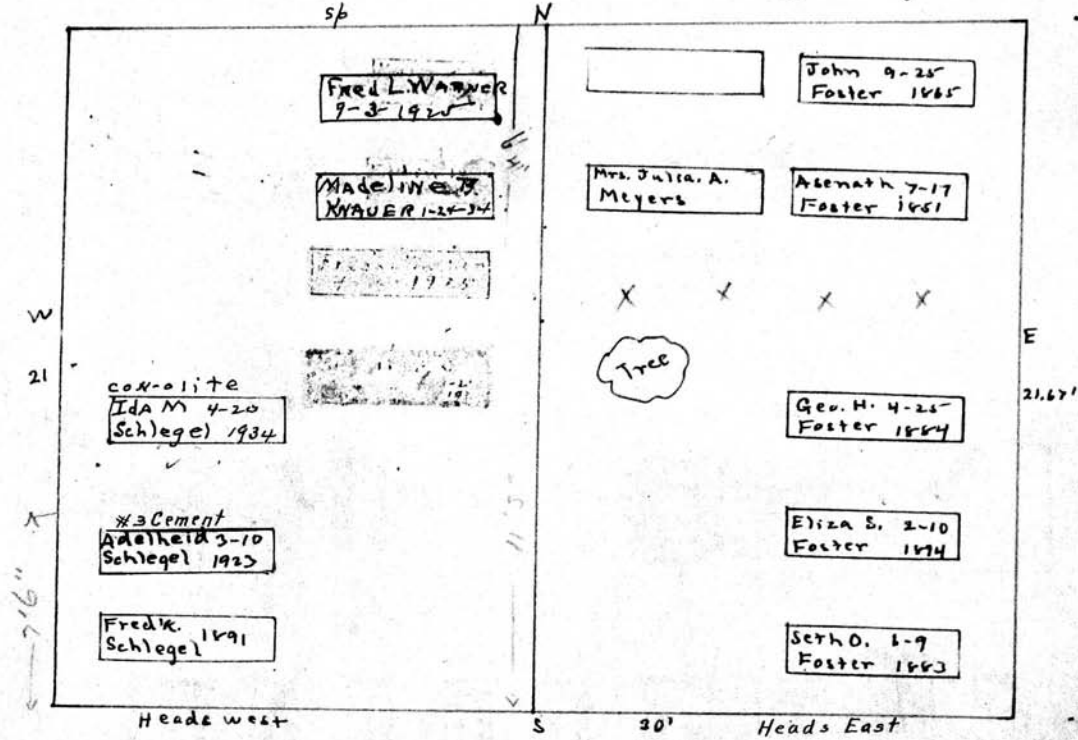 S/P
N
Fred L. WARNER
9-3-1925
MadeliNe
KNAUER 1-24-34
1925
W
21
CON-olite
IdA M 4-20
Schlegel 1934
#3 Cement
Adelheid 3-10
Schlegel 1923
Fred'k.
Schlegel 1891
Heads west
John 9-25
Foster 1865
Mrs. Julia. A.
Meyers
Asenath 7-17
Foster 1851
X X X X
Tree
E
21.67'
Geo. H. 4-25
Foster 1884
Eliza S. 2-10
Foster 1894
Seth O. 6-9
Foster 1883
S
30'
Heads East